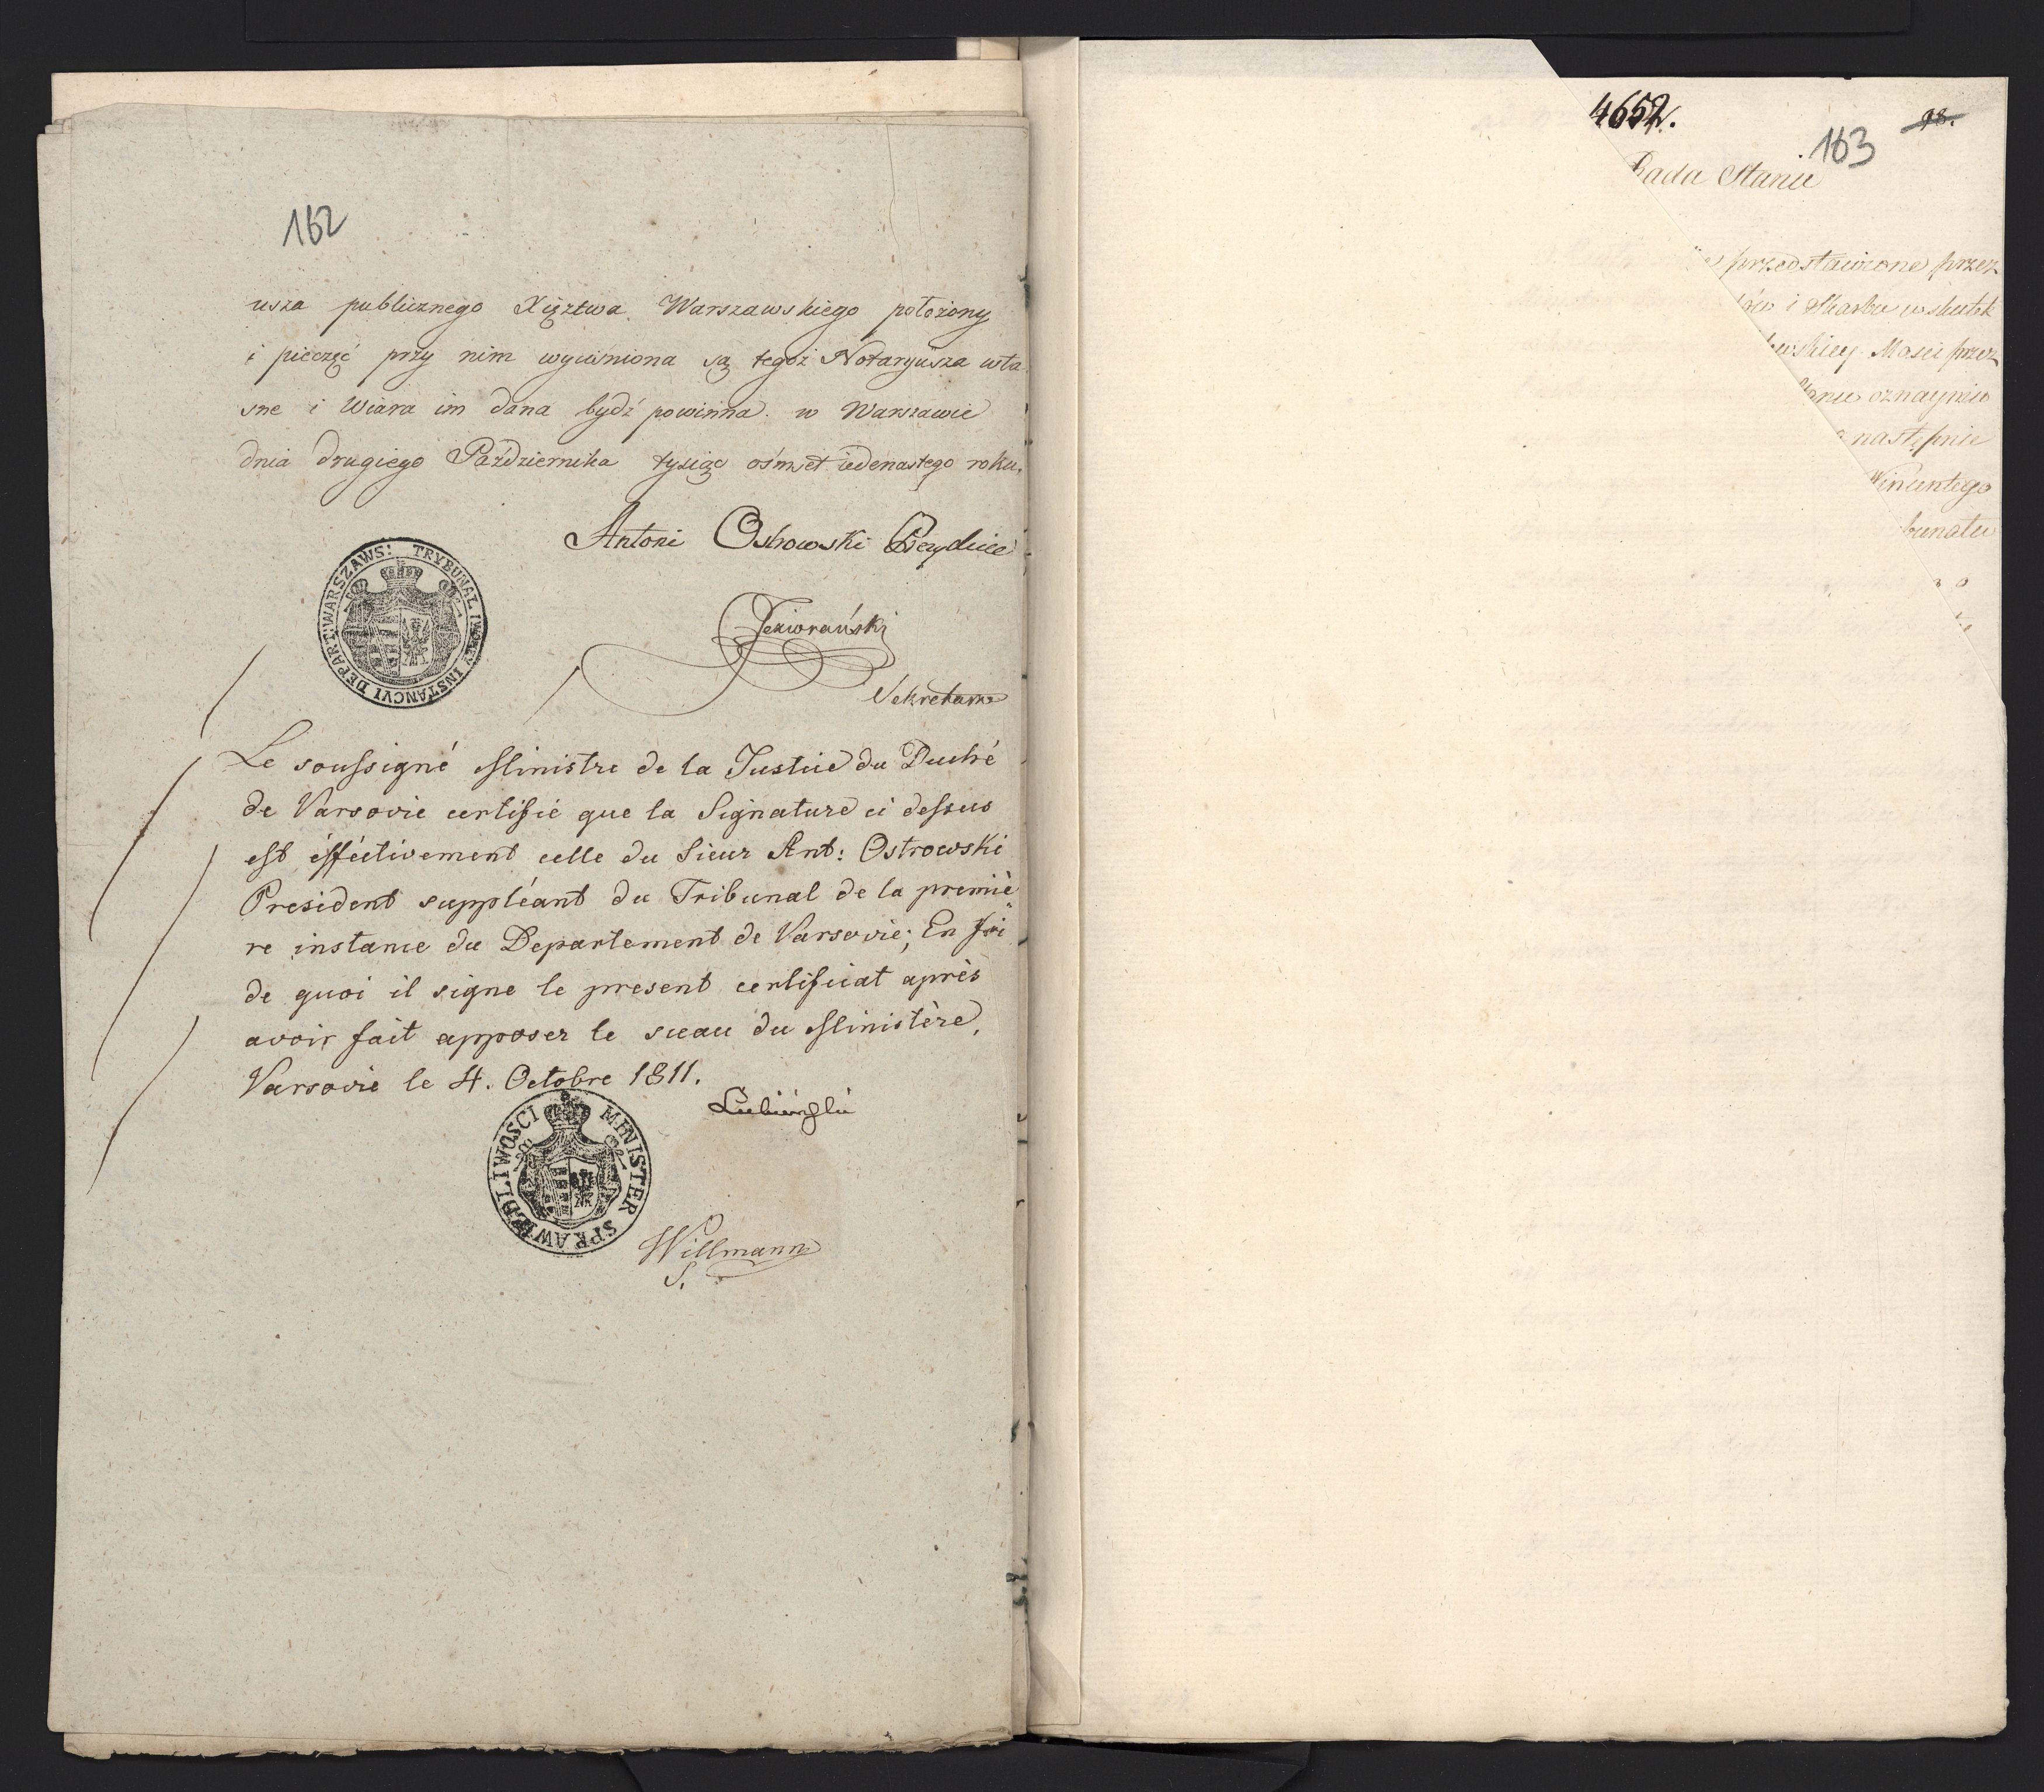 162
usza publicznego Xięztwa Warszawskiego położony
i pieczęć przy nim wyciśniona są tegoż Notaryusza wła
sne i Wiara im dana bydź powinna. w Warszawie
dnia drugiego Października tysiąc ośmset iedenastego roku.
Antoni Ostrowski
TRYBUNAL I INSTANCYI DEPART: WARSZAWS:
Jeziorański
Sekretarz
Le soussigné Ministre de la Justice du Duché
de Varsovie certifie que la Signature ci dessus
est éfféctivement celle du Sieur Ant: Ostrowski
President suppléant du Tribunal de la premiè
re instance du Departement de Varsovie; En foi
de quoi il signe le present certificat après
avoir fait apposer le sceau du Ministère,
Varsovie le 4. Octobre 1811.
Lubieński
MINISTER SPRAWIEDLIWOSCI
Willmann
S.
4652.
98.
163
Rada Stanu
przedstawione przez
i Skarbu wskutek
Mosci przez
oznaymiło
następnie
Wincentego
bunału